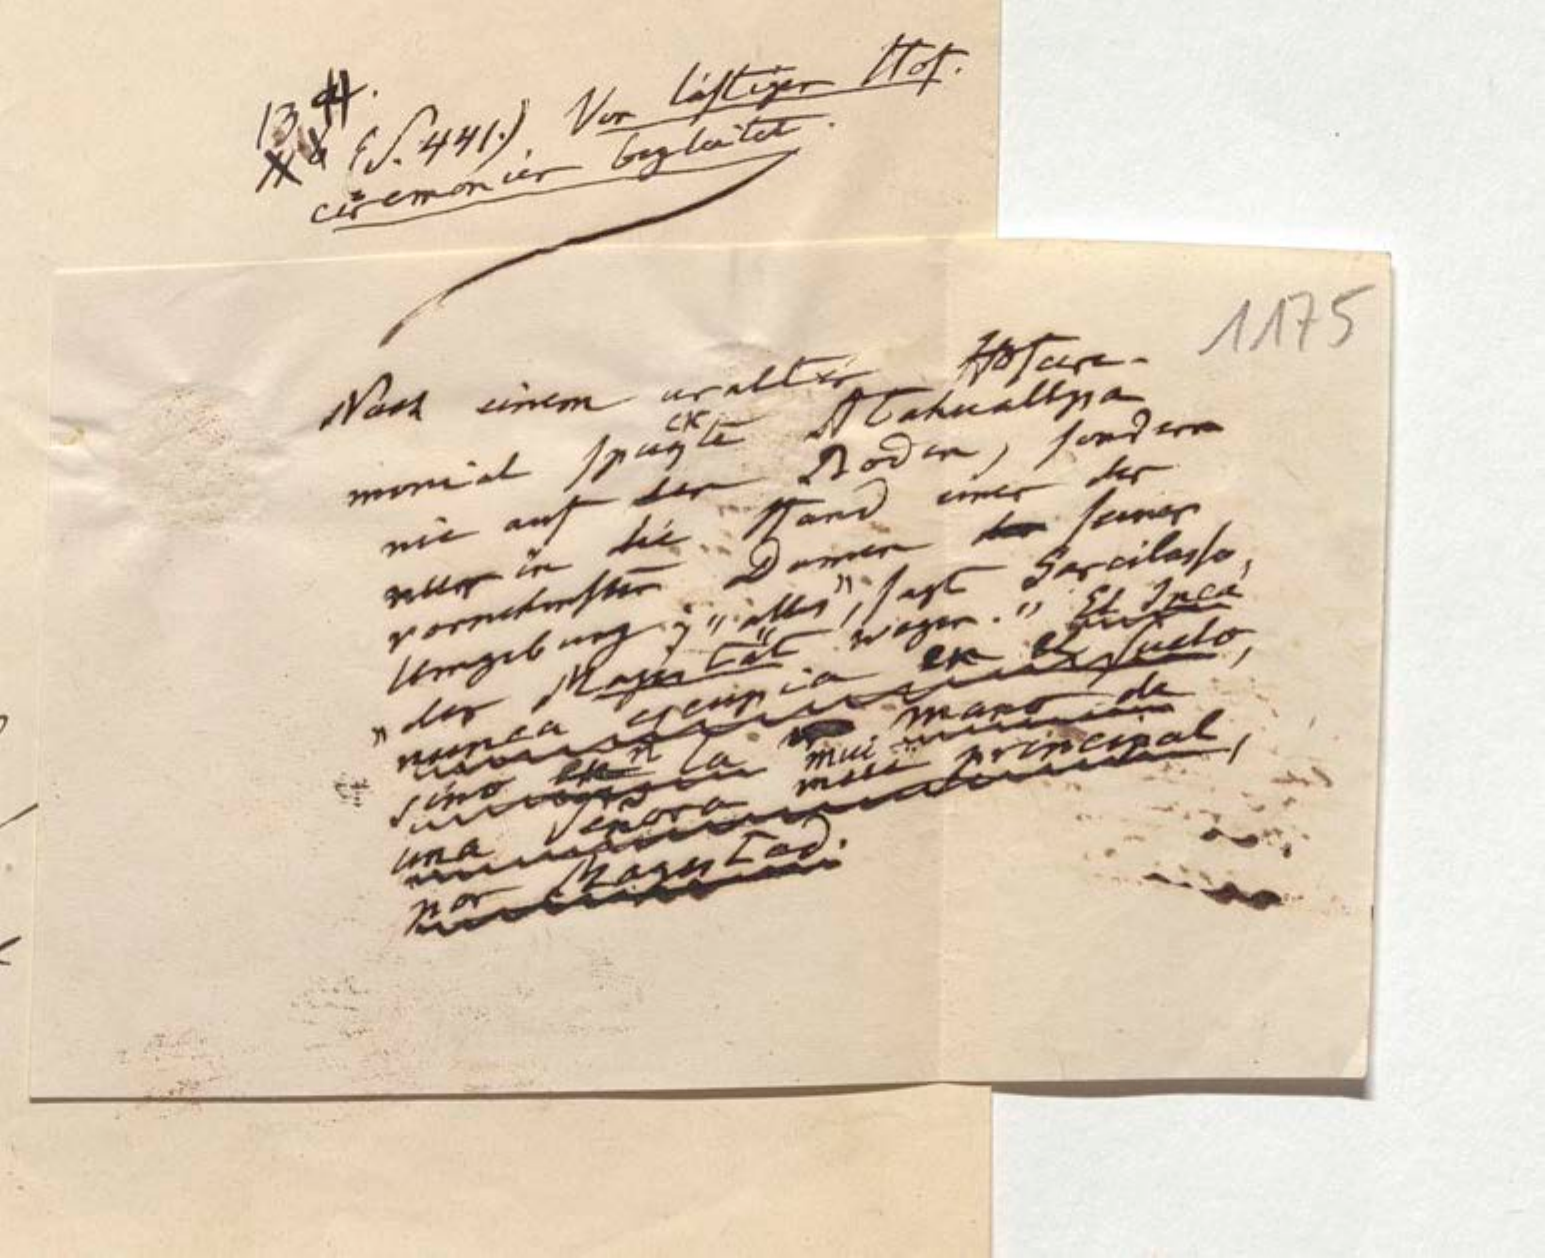 13.
(S. 441.) Von lästigen Hof-
ceremonien begleitet.
1175
Nach einem uralten Hofcere-
monial spuckte Atahuallpa
nie auf den Boden, sondern
nur in die Hand einer der
vornehmsten Damen seiner
Umgebung; „alles", sagt Garcilasso,
„der Majestät wegen." El Inca
nunca escupia en el suelo,
sino en la mano de
una Señora mui principal,
por Magestad.